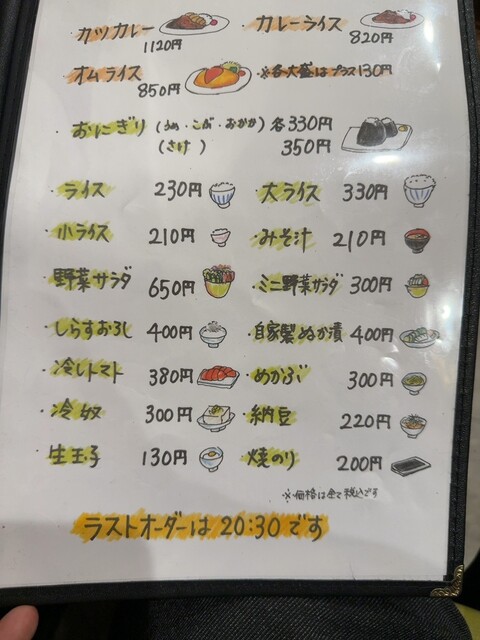 ・カツカレー 1120円 ・カレーライス 820円
・オムライス 850円 ※各大盛はプラス130円
・おにぎり (うめ・こぶ・おかか) 各330円
(さけ) 350円
・ライス 230円 ・大ライス 330円
・小ライス 210円 ・みそ汁 210円
・野菜サラダ 650円 ・ミニ野菜サラダ 300円
・しらすおろし 400円 ・自家製ぬか漬 400円
・冷しトマト 380円 ・めかぶ 300円
・冷奴 300円 ・納豆 220円
・生玉子 130円 ・焼のり 200円
※価格は全て税込です
ラストオーダーは20:30です